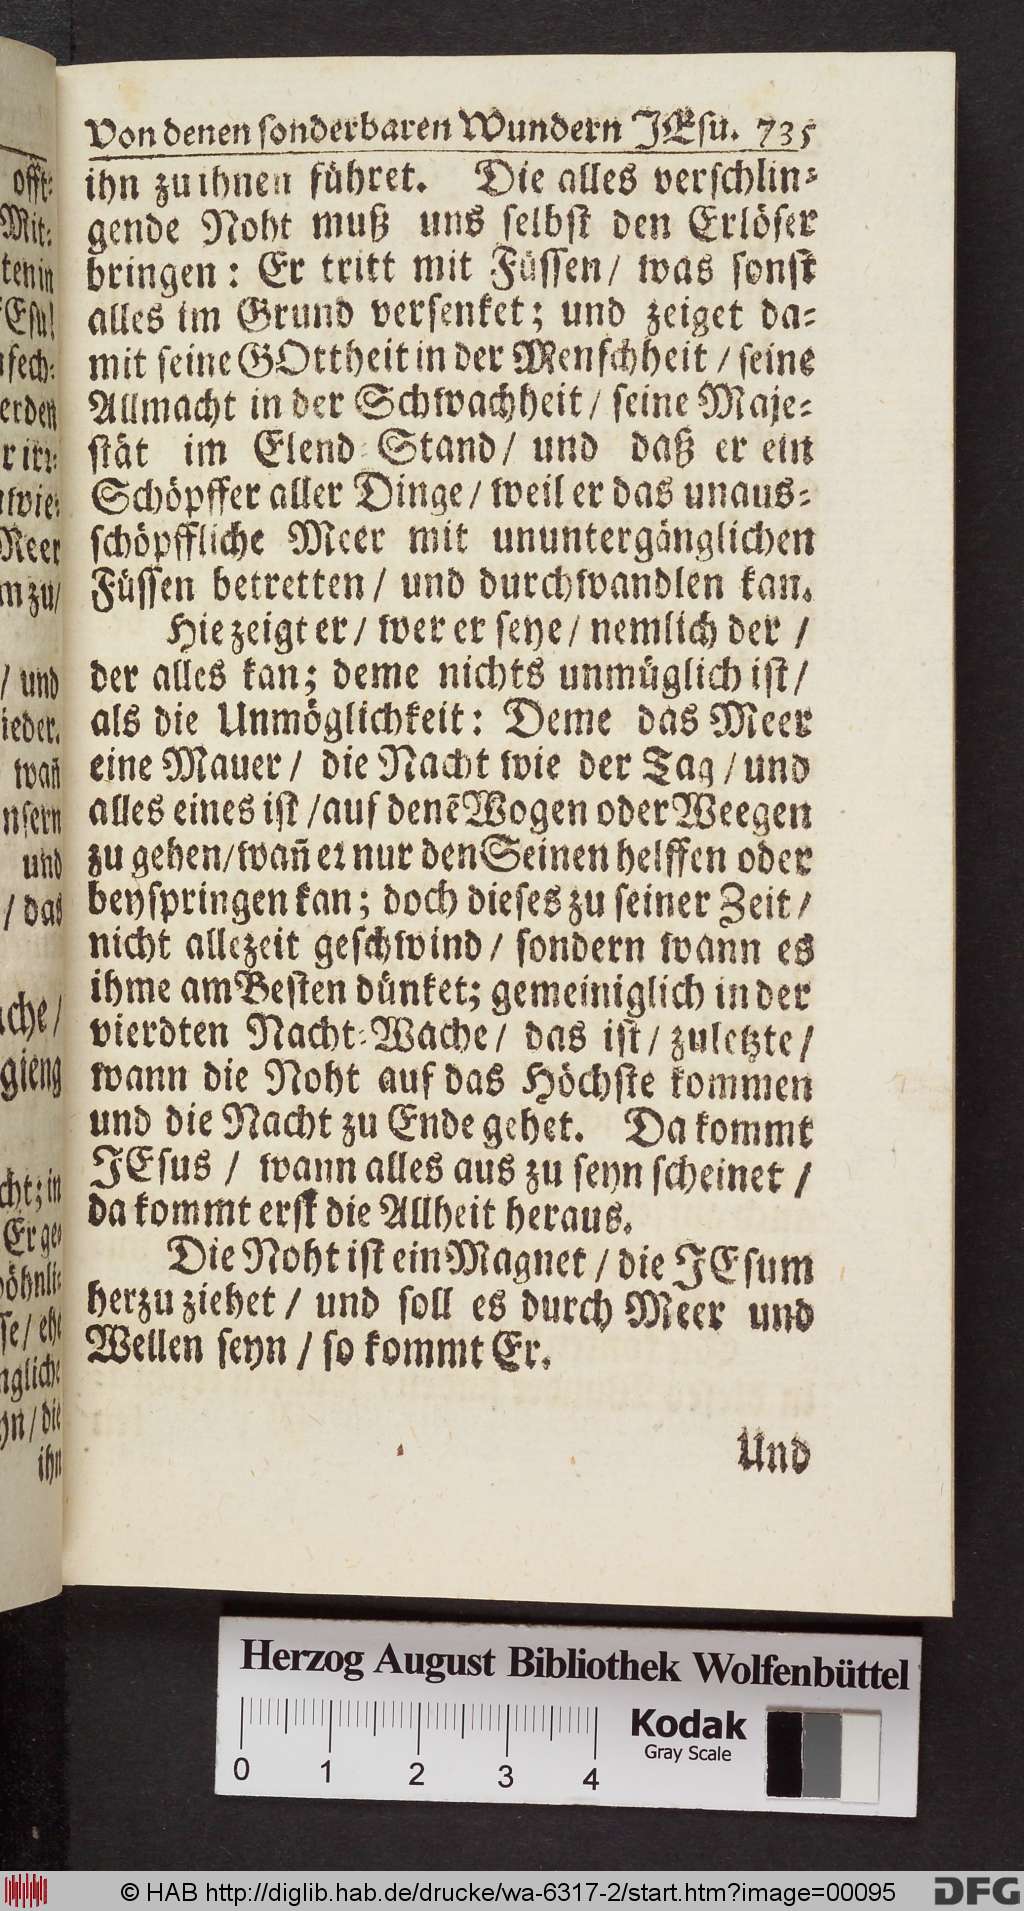 offt⸗
Mit⸗
ten in
Esu!
fech⸗
erden
r irr⸗
wie⸗
Meer
m zu/
/ und
ieder.
wañ
nsern
und
/ das
che /
gieng
cht; in
Er ge⸗
öhnli⸗
se / ehe
ngliche
yn / die
ihn
Von denen sonderbaren Wundern JEsu. 735
ihn zu ihnen führet. Die alles verschlin⸗
gende Noht muß uns selbst den Erlöser
bringen: Er tritt mit Füssen/ was sonst
alles im Grund versenket; und zeiget da⸗
mit seine GOttheit in der Menschheit / seine
Allmacht in der Schwachheit / seine Maje⸗
stät im Elend⸗Stand/ und daß er ein
Schöpffer aller Dinge / weil er das unaus⸗
schöpffliche Meer mit ununtergänglichen
Füssen betretten / und durchwandlen kan.
Hie zeigt er / wer er seye / nemlich der /
der alles kan; deme nichts unmüglich ist /
als die Unmöglichkeit: Deme das Meer
eine Mauer / die Nacht wie der Tag / und
alles eines ist / auf denē Wogen oder Weegen
zu gehen/wañ er nur den Seinen helffen oder
beyspringen kan; doch dieses zu seiner Zeit /
nicht allezeit geschwind / sondern wann es
ihme am Besten dünket; gemeiniglich in der
vierdten Nacht⸗Wache / das ist / zuletzte /
wann die Noht auf das Höchste kommen
und die Nacht zu Ende gehet. Da kommt
JEsus / wann alles aus zu seyn scheinet /
da kommt erst die Allheit heraus.
Die Noht ist ein Magnet / die JEsum
herzu ziehet / und soll es durch Meer und
Wellen seyn / so kommt Er.
Und
Herzog August Bibliothek Wolfenbüttel
0 1 2 3 4
Kodak
Gray Scale
© HAB http://diglib.hab.de/drucke/wa-6317-2/start.htm?image=00095
DFG